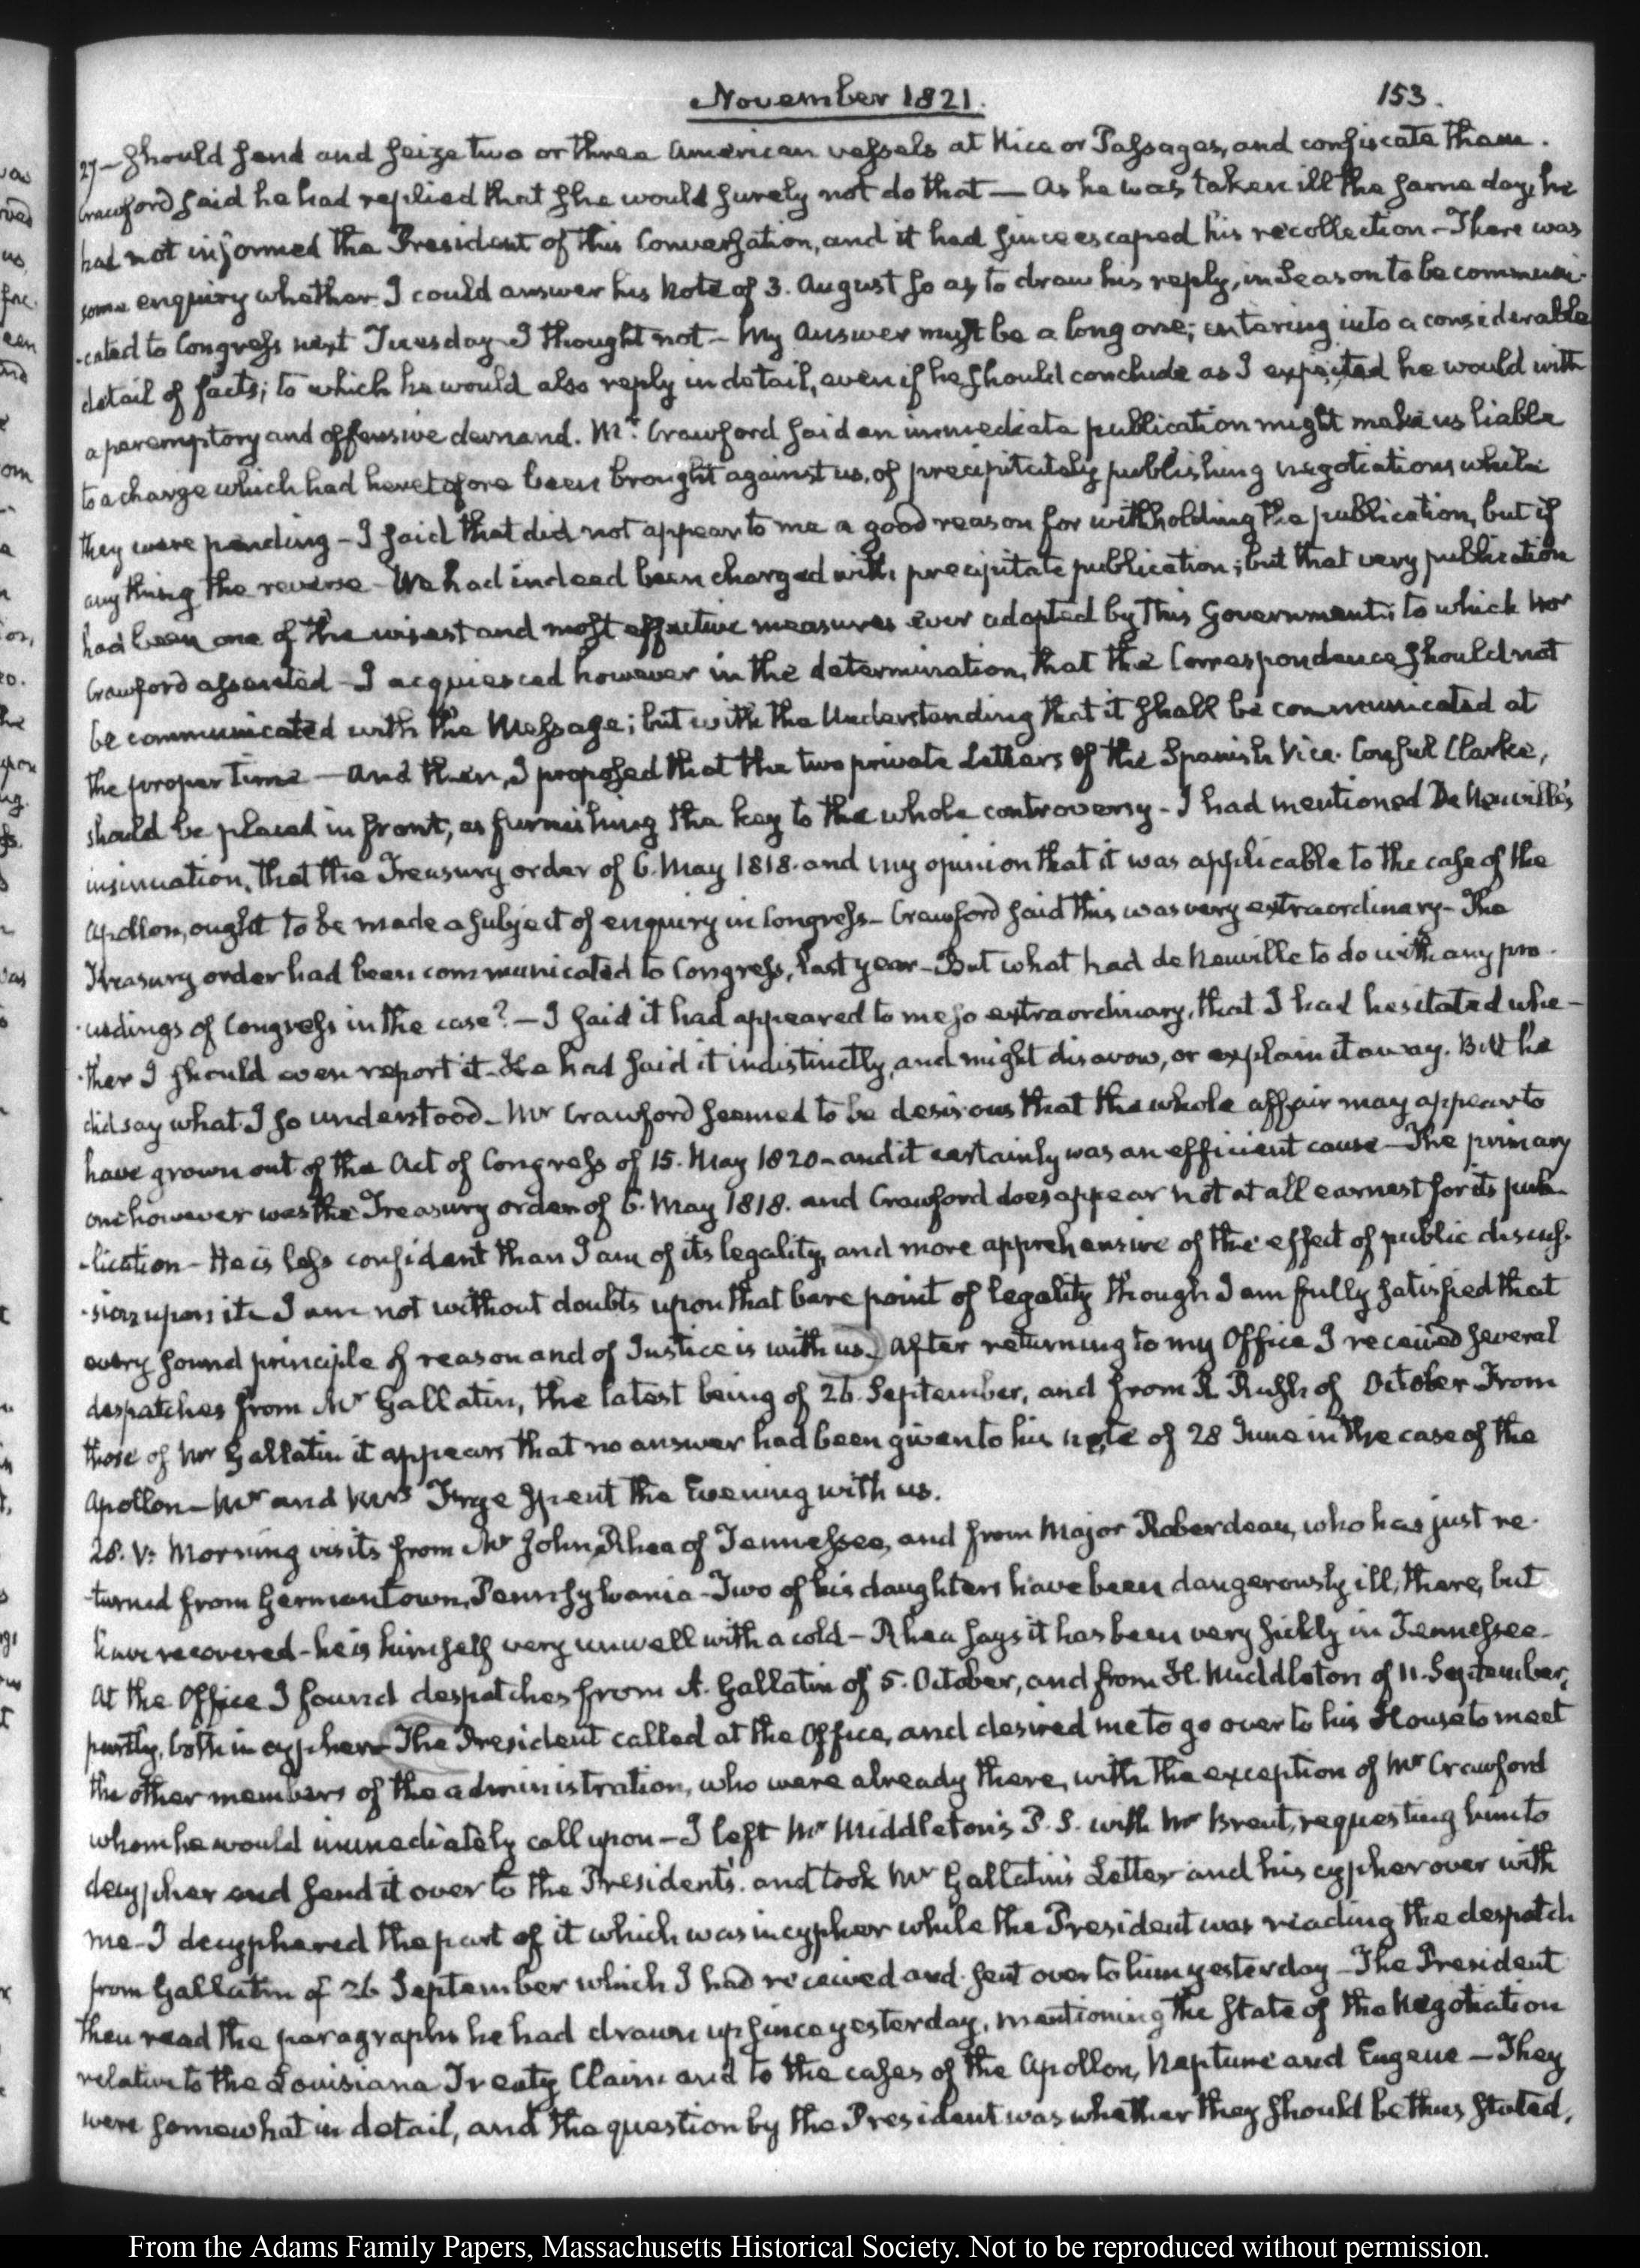 November 1821.
153.
27 — should send and seize two or three American vessels at Nice or Passages, and confiscate them.
Crawford said he had replied that she would surely not do that — As he was taken ill the same day, he
had not informed the President of this Conversation, and it had since escaped his recollection — There was
some enquiry whether I could answer his Note of 3. August so as to draw his reply, in season to be communi-
-cated to Congress next Tuesday — I thought not — My Answer must be a long one; entering into a considerable
detail of facts; to which he would also reply in detail, even if he should conclude as I expected he would with
a peremptory and offensive demand. Mr. Crawford said an immediate publication might make us liable
to a charge which had heretofore been brought against us, of precipitately publishing negotiations while
they were pending — I said that did not appear to me a good reason for withholding the publication, but if
any thing the reverse — We had indeed been charged with precipitate publication; but that very publication
had been one of the wisest and most effective measures ever adopted by this Government: to which Mr
Crawford assented — I acquiesced however in the determination, that the Correspondence should not
be communicated with the Message; but with the Understanding that it shall be communicated at
the proper time — And then, I proposed that the two private Letters of the Spanish Vice-Consul Clarke,
should be placed in front, as furnishing the key to the whole controversy — I had mentioned De Neuville's
insinuation, that the Treasury order of 6. May 1818. and my opinion that it was applicable to the case of the
Apollon, ought to be made a subject of enquiry in Congress — Crawford said this was very extraordinary — The
Treasury order had been communicated to Congress, last year — But what had de Neuville to do with any pro-
-ceedings of Congress in the case? — I said it had appeared to me so extraordinary, that I had hesitated whe-
-ther I should even report it — He had said it indistinctly, and might disavow, or explain it away. But he
did say what I so understood — Mr Crawford seemed to be desirous that the whole affair may appear to
have grown out of the Act of Congress of 15. May 1820 — and it certainly was an efficient cause — The primary
one however was the Treasury order of 6. May 1818. and Crawford does appear not at all earnest for its pub-
-lication — He is less confident than I am of its legality, and more apprehensive of the effect of public discus-
-sion upon it — I am not without doubts upon that bare point of legality though I am fully satisfied that
every sound principle of reason and of Justice is with us. After returning to my Office I received several
despatches from Mr Gallatin, the latest being of 26. September, and from R. Rush of October From
those of Mr Gallatin it appears that no answer had been given to his note of 28 June in the case of the
Apollon — Mr and Mrs Frye spent the Evening with us.
28. V: Morning visits from Mr John Rhea of Tennessee, and from Major Roberdeau, who has just re-
-turned from Germantown, Pennsylvania — Two of his daughters have been dangerously ill, there, but
have recovered — he is himself very unwell with a cold — Rhea says it has been very sickly in Tennessee —
At the Office I found despatches from A. Gallatin of 5. October, and from H. Middleton of 11. September,
partly, both in cypher — The President called at the Office, and desired me to go over to his House to meet
the other members of the administration, who were already there, with the exception of Mr Crawford
whom he would immediately call upon — I left Mr Middleton's P.S. with Mr Brent, requesting him to
decypher and send it over to the President's. and took Mr Gallatin's Letter and his cypher over with
me — I decyphered the part of it which was in cypher while the President was reading the despatch
from Gallatin of 26 September which I had received and sent over to him yesterday — The President
then read the paragraphs he had drawn up since yesterday, mentioning the state of the Negotiation
relative to the Louisiana Treaty Claim and to the cases of the Apollon, Neptune and Eugene — They
were somewhat in detail, and the question by the President was whether they should be thus stated,
From the Adams Family Papers, Massachusetts Historical Society. Not to be reproduced without permission.